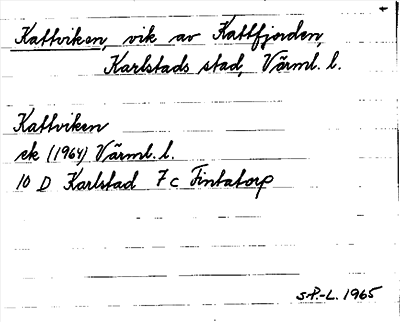 Kattviken, vik av Kattfjorden,
Karlstads stad, Värml. l.
Kattviken
ek (1964) Värml. l.
10 D Karlstad 7 c Fintatorp
S.P.-L. 1965